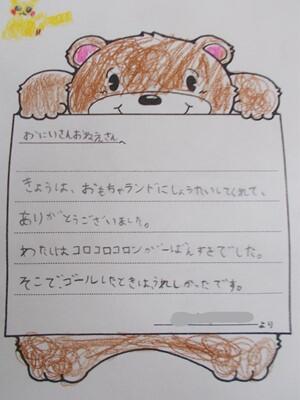 おにいさんおねえさんへ
きょうは、おもちゃランドにしょうたいしてくれて、
ありがとうございました。
わたしはコロコロコロンが一ばんすきでした。
そこで、ゴールしたときはうれしかったです。
より